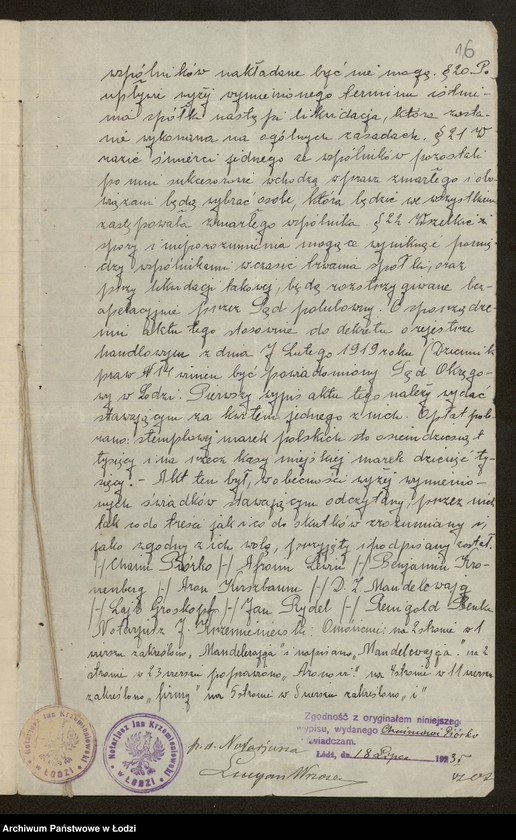 16
wspólników nakładane być nie mogą. § 20 Po
upływie wyżej wymienionego terminu istnie-
nia spółki nastąpi likwidacja, która zosta-
nie wykonana na ogólnych zasadach. § 21 W
razie śmierci jednego ze wspólników pozostali
po nim sukcesorowie wchodzą w prawa zmarłego i obo-
wiązani będą wybrać osobę, która będzie we wszystkiem
zastępowała zmarłego wspólnika § 22 Wszelkie
spory i nieporozumienia mogące wyniknąć pomię-
dzy wspólnikami w czasie trwania spółki, oraz
przy likwidacji takowej, będą rozstrzygane bez-
apelacyjnie przez Sąd polubowny. O sporządze-
niu aktu tego stosownie do dekretu o rejestrze
handlowym z dnia 7 Lutego 1919 roku /Dziennik
praw № 14 winien być powiadomiony Sąd Okręgo-
wy w Łodzi. Pierwszy wypis aktu tego należy wydać
stawającym za kwitem jednego z nich. Opłat pob-
rano: stemplowej marek polskich sto osiemdziesiąt
tysięcy i na rzecz kasy miejskiej marek dziewięć ty-
sięcy. - Akt ten był, w obecności wyżej wymienio-
nych świadków stawającym odczytany, przez nich
tak co do treści jak i co do skutków zrozumiany i,
jako zgodny z ich wolą, przyjęty i podpisany został.
/-/ Chaim Piórko /-/ Lewin /-/ Benjamin Kro-
nenberg /-/ Aron Kirszbaum /-/ D. I. Mandelcwajg
/-/ Lajb Groskopf /-/ Jan Rydel /-/ Reingold Benke
Notarjusz J. Krzemieniewski: Omówienie: na 2 stronie w 1
wierszu zakreślono „Mandelcwajga" i napisano „Mandelcwajga" na 2
stronie w 23 wierszu poprawiono „Aronowi" na 4 stronie w 11 wierszu
zakreślono „firmy" na 5 stronie w 8 wierszu zakreślono „i"
Zgodność z oryginałem niniejszego
wypisu, wydanego Chaimowi Piórko
poświadczam.
Łódź, dnia 18 Lipca 1935 r.
p.o. Notarjusza
Lucjan
Notarjusz Jan Krzemieniewski
w ŁODZI
Notarjusz Jan Krzemieniewski
w ŁODZI
Archiwum Państwowe w Łodzi